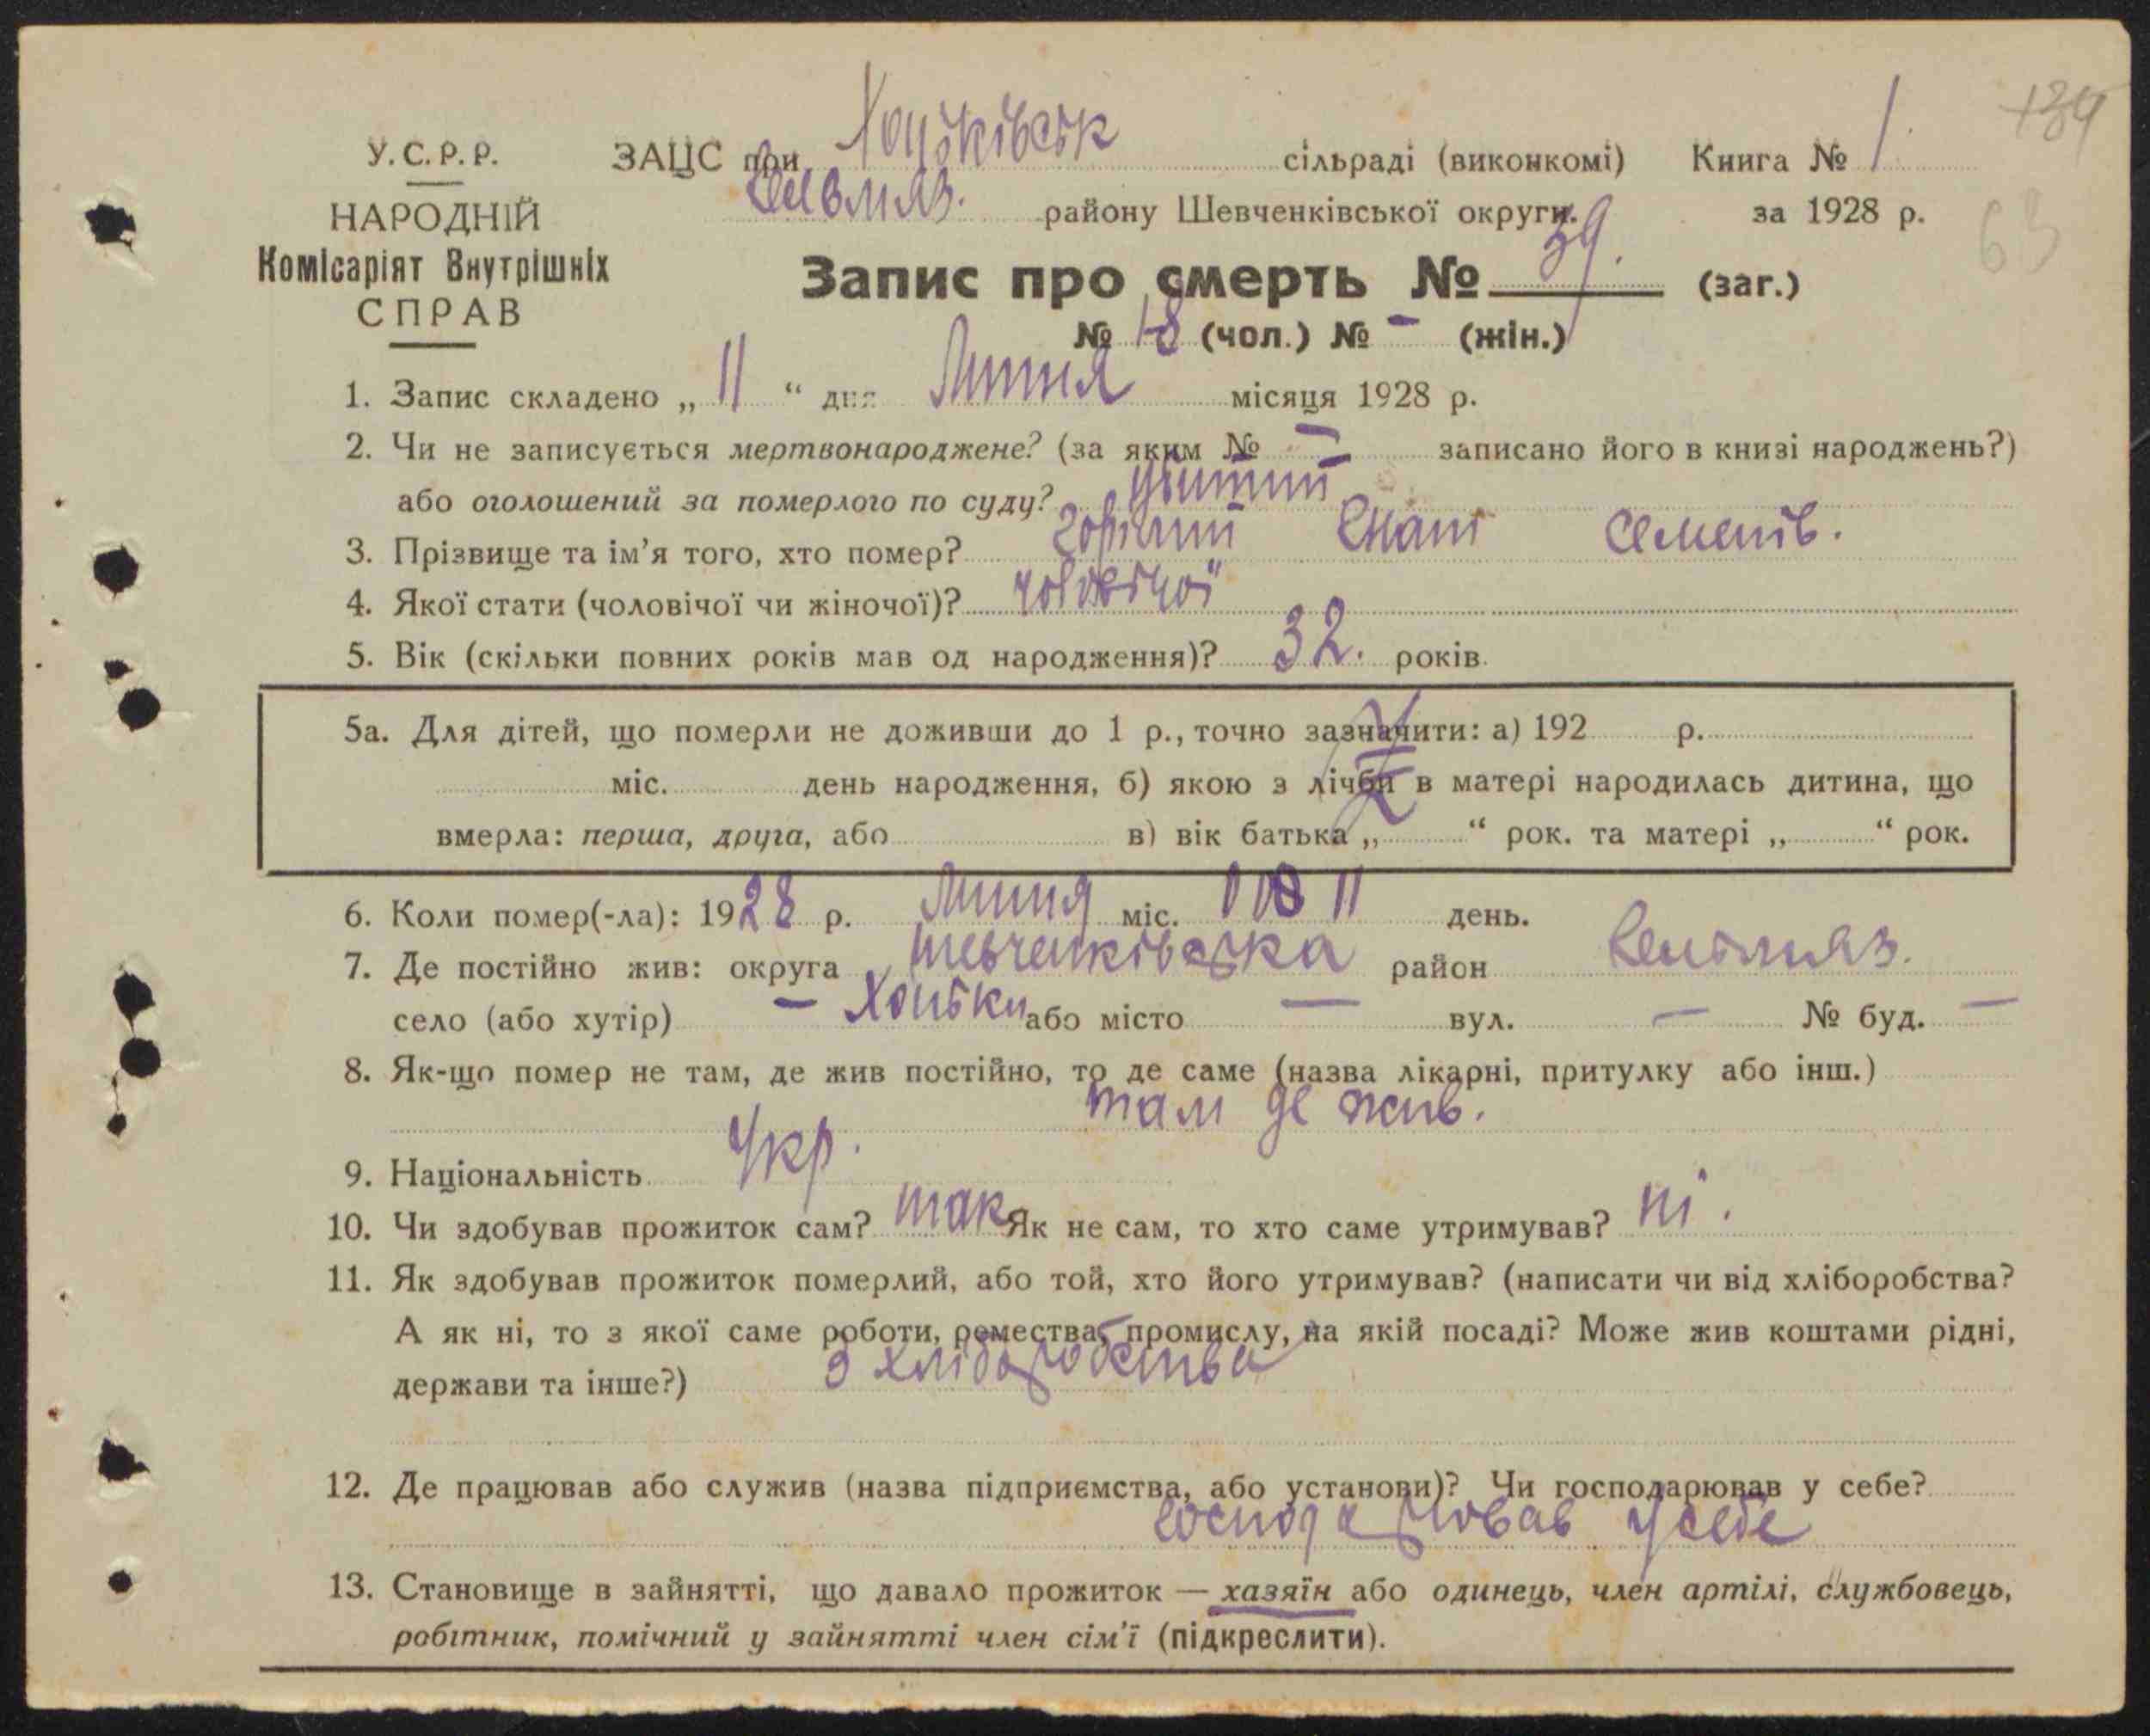 134
У.С.Р.Р. ЗАЦС при Хоцьківськ сільраді (виконкомі) Книга № 1.
НАРОДНІЙ Гельмяз. району Шевченківської округи. за 1928 р. 63
Комісаріят Внутрішніх
СПРАВ
Запис про смерть № 39. (заг.)
№ 18 (чол.) № – (жін.)
1. Запис складено „ 11 “ дня Липня місяця 1928 р.
2. Чи не записується мертвонароджене? (за яким № – записано його в книзі народжень?)
або оголошений за померлого по суду?
3. Прізвище та ім’я того, хто помер? Гнат Семенів.
4. Якої стати (чоловічої чи жіночої)? чоловічої
5. Вік (скільки повних років мав од народження)? 32. років.
5а. Для дітей, що померли не доживши до 1 р., точно зазначити: а) 192 р.
міс. день народження, б) якою з лічби в матері народилась дитина, що
вмерла: перша, друга, або в) вік батька „ “ рок. та матері „ “ рок.
6. Коли помер(-ла): 1928 р. Липня міс. 11 день.
7. Де постійно жив: округа Шевченківська район Гельмяз.
село (або хутір) – Хоцьки або місто – вул. – № буд. –
8. Як-що помер не там, де жив постійно, то де саме (назва лікарні, притулку або інш.)
там де жив.
9. Національність Укр.
10. Чи здобував прожиток сам? так Як не сам, то хто саме утримував? ні.
11. Як здобував прожиток померлий, або той, хто його утримував? (написати чи від хліборобства?
А як ні, то з якої саме роботи, ремества, промислу, на якій посаді? Може жив коштами рідні,
держави та інше?) З хліборобства
12. Де працював або служив (назва підприємства, або установи)? Чи господарював у себе?
господарював у себе
13. Становище в зайнятті, що давало прожиток — хазяїн або одинець, член артілі, службовець,
робітник, помічний у зайнятті член сім’ї (підкреслити).